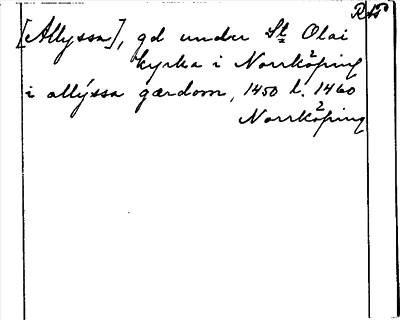 R 150
[Allyssa], gd under St Olai
kyrka i Norrköping
i allÿssa gærdom, 1450 t. 1460
Norrköping